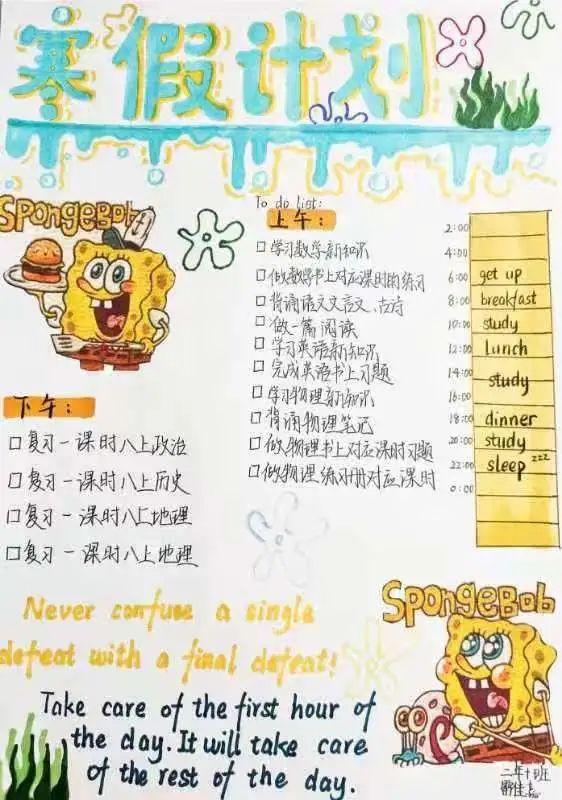 寒假计划
SPONGEBOB
To do list:
上午:
□学习数学新知识
□做数学书上对应课时的练习
□背诵语文文言文、古诗
□做一篇阅读
□学习英语新知识
□完成英语书上习题
□学习物理新知识
□背诵物理笔记
□做物理书上对应课时习题
□做物理练习册对应课时
2:00
4:00
6:00 get up
8:00 breakfast
10:00 study
12:00 Lunch
14:00 study
16:00
18:00 dinner
20:00 study
22:00 sleep zzz
0:00
下午:
□复习一课时八上政治
□复习一课时八上历史
□复习一课时八上地理
□复习一课时八上地理
Never confuse a single
defeat with a final defeat!
SPONGEBOB
Take care of the first hour of
the day. It will take care
of the rest of the day.